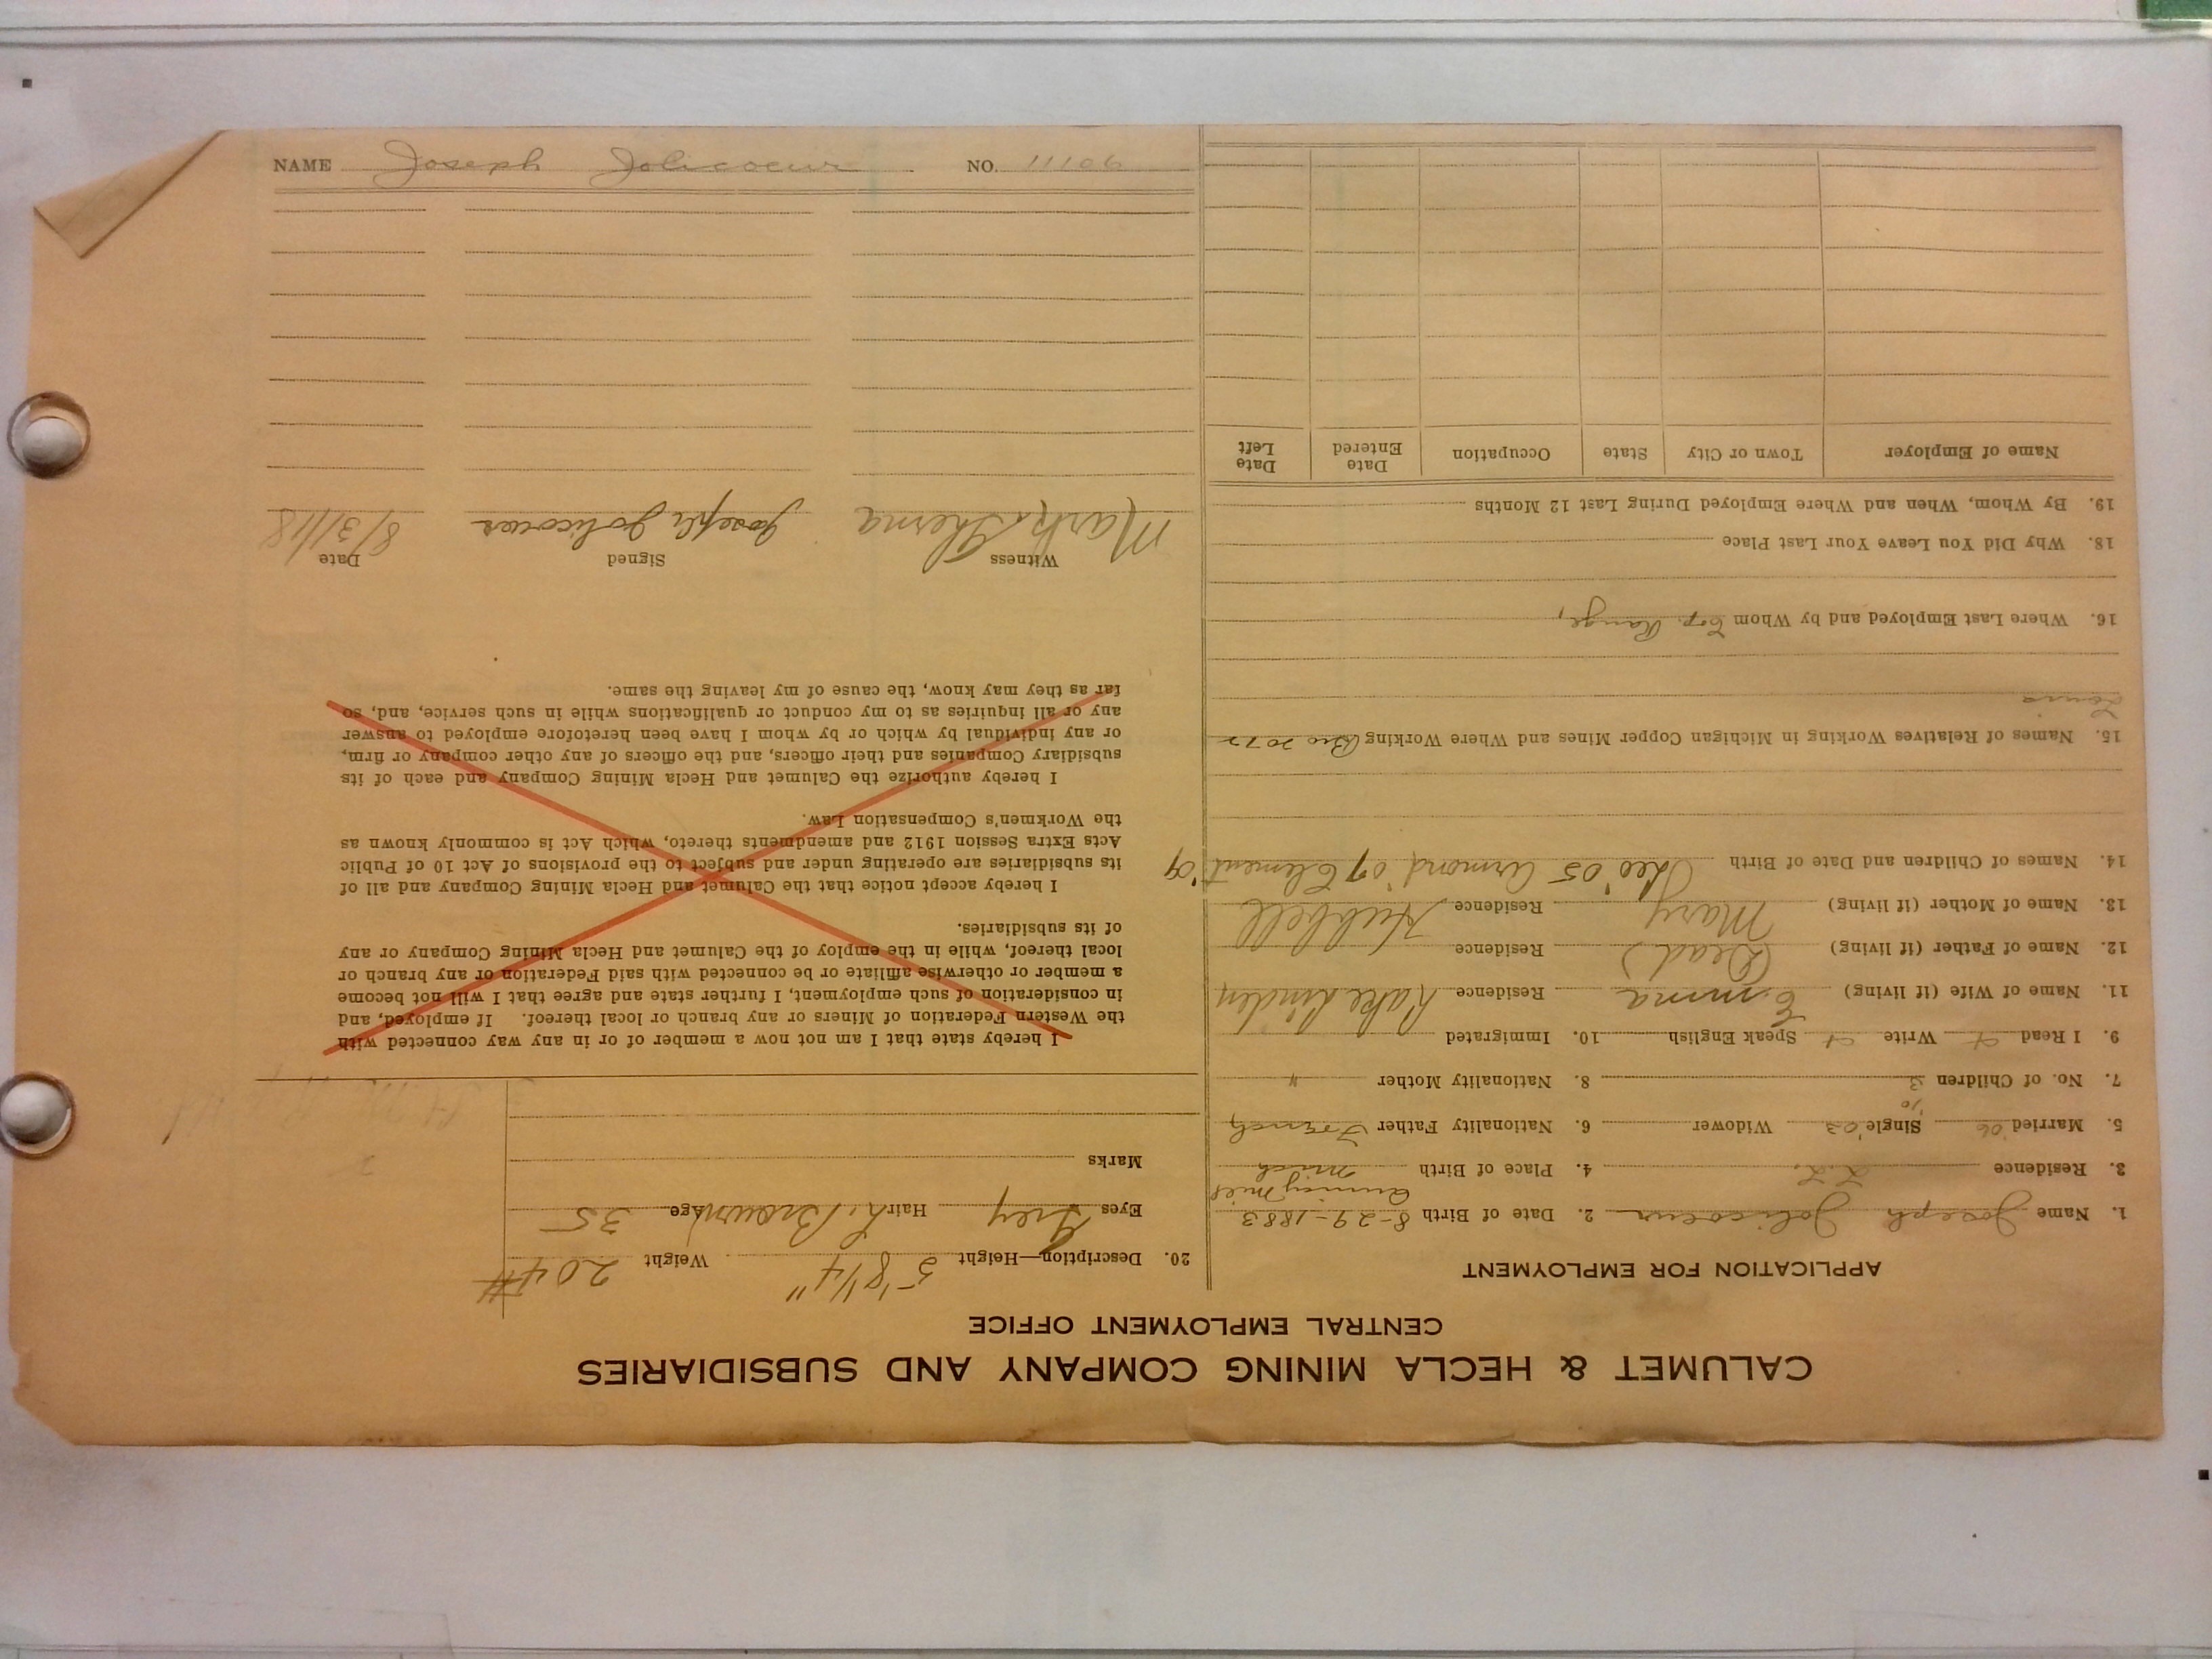 CALUMET & HECLA MINING COMPANY AND SUBSIDIARIES
CENTRAL EMPLOYMENT OFFICE
APPLICATION FOR EMPLOYMENT
1. Name Joseph Jolicoeur 2. Date of Birth 8-29-1883
3. Residence L. L. 4. Place of Birth Mich
5. Married '06 Single '03 Widower 6. Nationality Father French
'10
7. No. of Children 3 8. Nationality Mother "
9. I Read Write Speak English 10. Immigrated
11. Name of Wife (if living) Emma Residence Lake Linden
12. Name of Father (if living) (Dead) Residence
13. Name of Mother (if living) Mary Residence Hubbell
14. Names of Children and Date of Birth Leo '05 Armond '07 Clement '09
15. Names of Relatives Working in Michigan Copper Mines and Where Working Bro
Louis
16. Where Last Employed and by Whom Cop. Range,
18. Why Did You Leave Your Last Place
19. By Whom, When and Where Employed During Last 12 Months
Name of Employer Town or City State Occupation Date Entered Date Left
20. Description—Height 5' 8 1/4" Weight 204#
Eyes Grey Hair L. Brown Age 35
Marks
I hereby state that I am not now a member of or in any way connected with
the Western Federation of Miners or any branch or local thereof. If employed, and
in consideration of such employment, I further state and agree that I will not become
a member or otherwise affiliate or be connected with said Federation or any branch or
local thereof, while in the employ of the Calumet and Hecla Mining Company or any
of its subsidiaries.
I hereby accept notice that the Calumet and Hecla Mining Company and all of
its subsidiaries are operating under and subject to the provisions of Act 10 of Public
Acts Extra Session 1912 and amendments thereto, which Act is commonly known as
the Workmen's Compensation Law.
I hereby authorize the Calumet and Hecla Mining Company and each of its
subsidiary Companies and their officers, and the officers of any other company or firm,
or any individual by which or by whom I have been heretofore employed to answer
any or all inquiries as to my conduct or qualifications while in such service, and, so
far as they may know, the cause of my leaving the same.
Witness Signed Date
Joseph Jolicoeur 8/31/18
NAME Joseph Jolicoeur NO. 11106